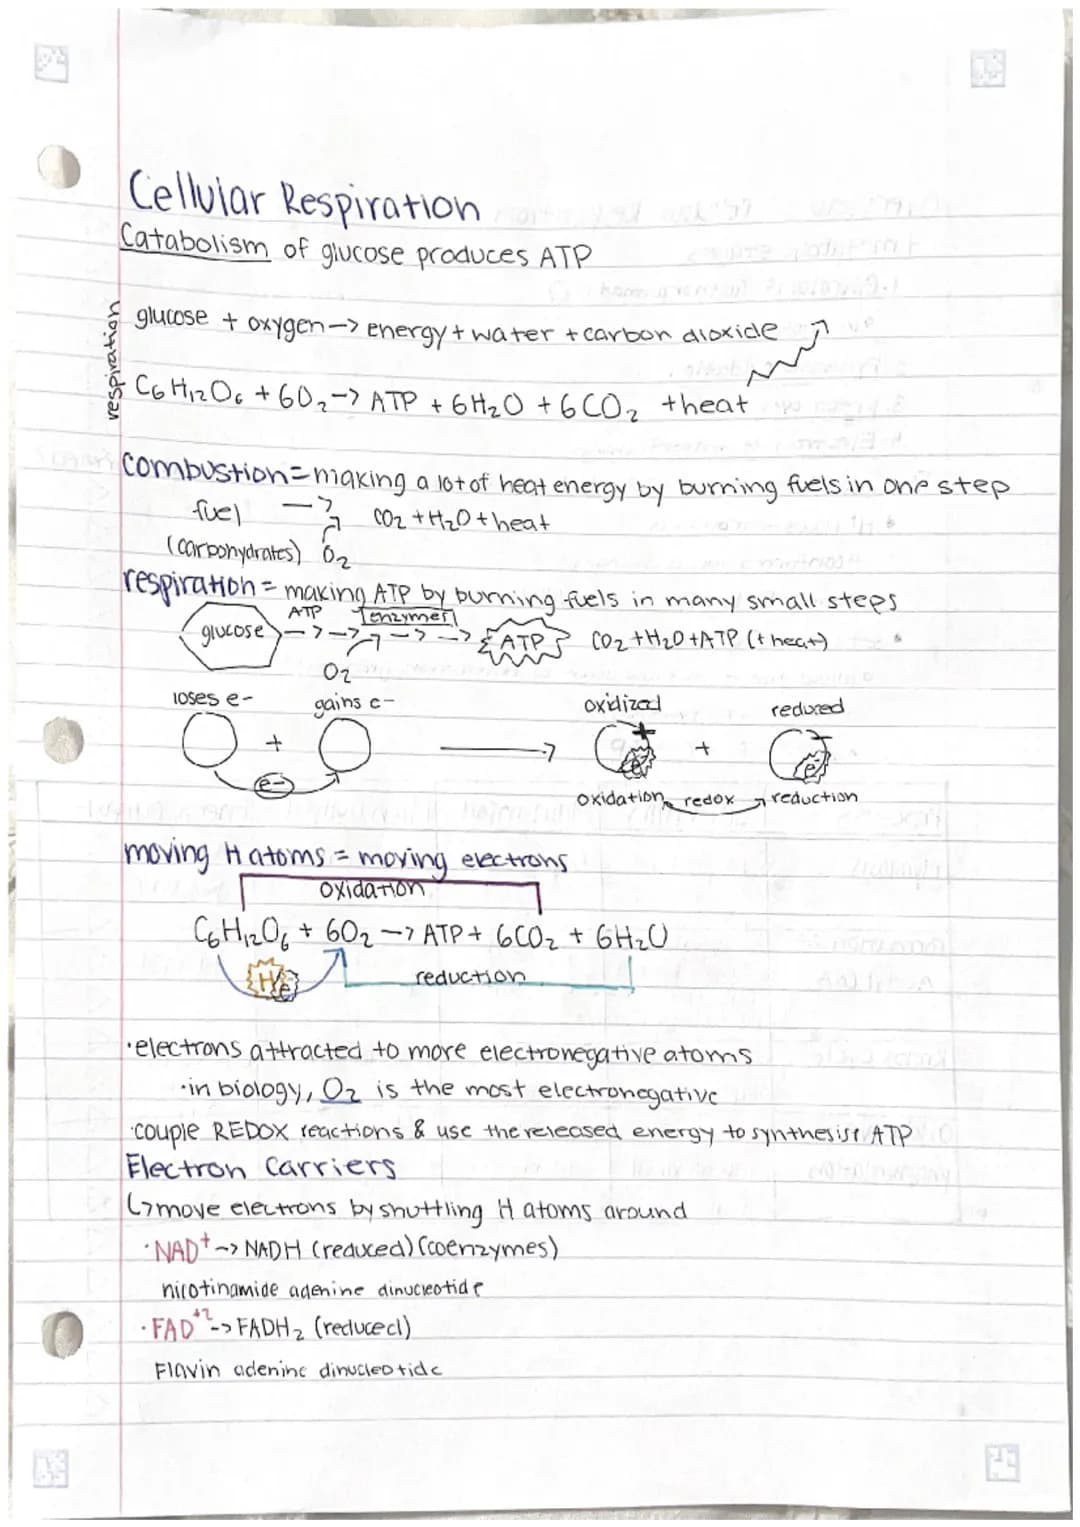 Cellular Respiration
Catabolism of glucose produces ATP
respiration
glucose + oxygen -> energy + water + carbon dioxide
C6H12O6 + 6O2 -> ATP + 6H2O + 6CO2 + heat
combustion = making a lot of heat energy by burning fuels in one step
fuel -> CO2 + H2O + heat
(carbohydrates) O2
respiration = making ATP by burning fuels in many small steps
ATP enzymes
glucose -> -> -> -> ATP CO2 + H2O + ATP (+ heat)
O2
loses e- gains e- oxidized reduced
+ -> + + -
e- e- e-
oxidation redox reduction
moving H atoms = moving electrons
oxidation
C6H12O6 + 6O2 -> ATP + 6CO2 + 6H2O
H e- reduction
·electrons attracted to more electronegative atoms
·in biology, O2 is the most electronegative
·couple REDOX reactions & use the released energy to synthesize ATP
Electron Carriers
↳ move electrons by shuttling H atoms around
·NAD+ -> NADH (reduced) (coenzymes)
nicotinamide adenine dinucleotide
·FAD+2 -> FADH2 (reduced)
Flavin adenine dinucleotide